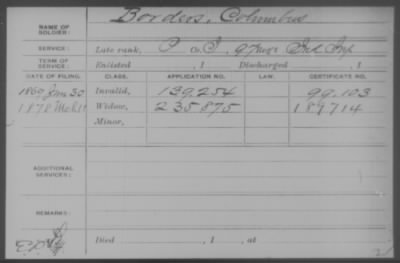 NAME OF SOLDIER: Borders, Columbus
SERVICE: Late rank, P Co. I, 97 Reg't Ind Inf
TERM OF SERVICE: Enlisted , 1 Discharged , 1
DATE OF FILING. CLASS. APPLICATION NO. LAW. CERTIFICATE NO.
Jan 30 Invalid, 139.254 99.103
1878 Mch 11 Widow, 235,875 189714
Minor,
ADDITIONAL SERVICES:
REMARKS:
Died , 1 , at